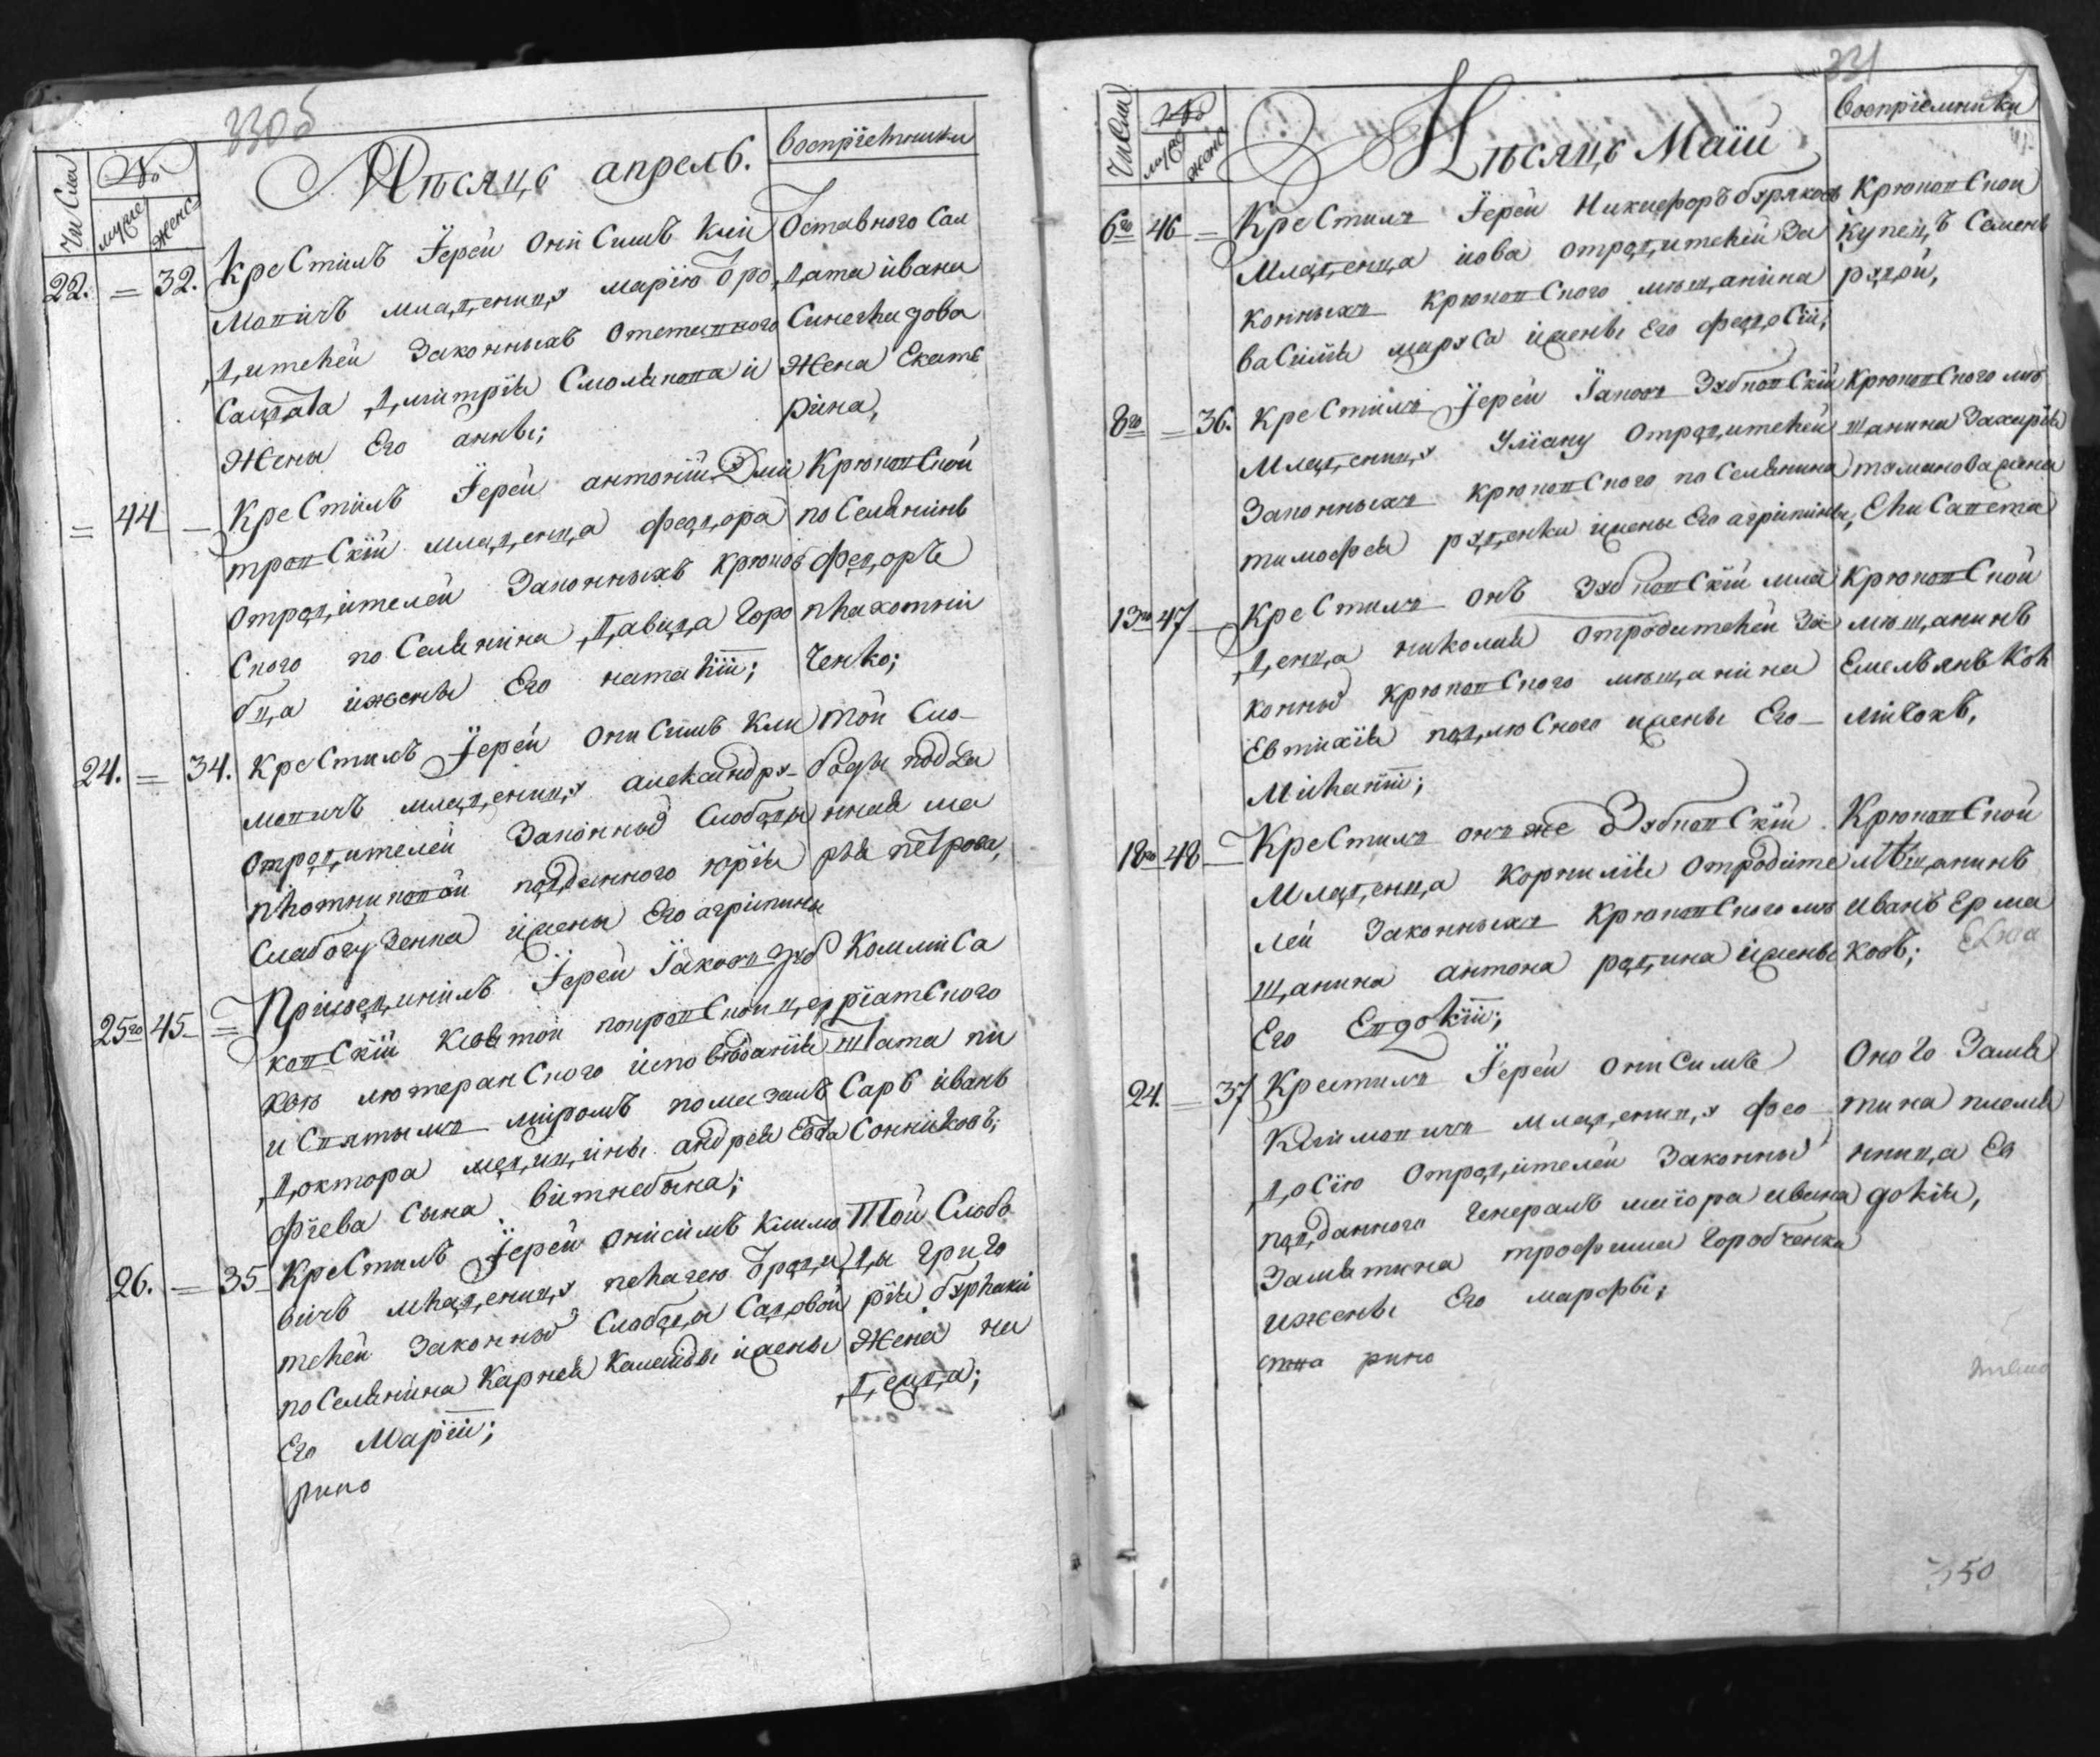 330б
Чи Сла
№
муже
женс
Мѣсяцъ апрель.
воспрїемники
22. = 32. КреСтилъ Їерей ОниСимъ Кли
мовичъ младеницу марїю Ѿро
дителей Законныхъ Отставного
Салдата Дмитрїя Смолякова и
Жены Его анны;
Оставного Сал
дата ивана
Жена Екате
рина,
= 44 — КреСтилъ Їерей антонїй Дми
тровСкїй младенца федора
Отродителей Законныхъ Крюков
Ского поСелянина Давида Горо
бца ижены Его наталїи;
КрюковСкой
поСелянинъ
федоръ
плахотни
Ченко;
24. = 34. КреСтилъ Їерей ОниСимъ Кли
мовичъ младеницу александру
Отродителей Законны Слободы
плотниковой подданного юрїя
ижены Его агрипины
той Сло
боды подда
нная ма
рья петрова,
25го 45 = Присоединилъ Їерей Їаковъ Зуб
ковСкїй Ксвятой покровСкой це
ркви лютеранСкого исповѣданїя
и Святымъ миромъ помазалъ
Доктора медицины андрея
сына
КоммиСа
рїатСкого
штата пи
Сарь иванъ
Сонниковъ;
26. = 35 КреСтилъ Їерей онисимъ Климо
вичъ младеницу пелагею Ѿроди
телей Законны Слободы Садовой
поСелянина Карнея ижены
Его Марїи;
рино
Той Слобо
ды григо
рїя
Жена на
дежда;
331
ЧиСла
№
муже
женс
Мѣсяцъ Маїй
Воспрїемники
6го 46 = КреСтилъ Їерей Никифоръ Буряковъ
Младенца иова отродителей За
конныхъ КрюковСкого мѣщанина
ваСилїя ижены Его федоСїи;
КрюковСкой
купецъ Семенъ
рудой,
8го = 36. КреСтилъ Їерей Їаковъ ЗубковСкїй
Младеницу Улїану Отродителей
Законныхъ КрюковСкого поСелянина
тимофея руденка ижены Его агрипины,
КрюковСкого мѣ
щанина Захарїя
жена
ЕлиСавета
13го 47 — КреСтилъ онъ ЗубковСкїй мла
денца николая отродителей За
конны КрюковСкого мѣщанина
Евтихїя ижены Его
Миланїи;
КрюковСкой
мѣщанинъ
Емельянъ Кол
18го 48 — КреСтилъ онъ же ЗубковСкїй
Младенца Корнилїя Отродите
лей Законныхъ КрюковСкого мѣ
щанина антона рудина ижены
Его Евдокїи;
КрюковСкой
Мѣщанинъ
иванъ Ерма
ковъ;
24. = 37 Крестилъ Їерей ониСимъ
Климовичъ младеницу фео
доСїю Отродителей Законны
подданного генералъ маїора ивана
Замятина трофима Горобченка
ижены Его марфы;
рино
Оного Замя
тина племя
нница Ев
докїя,
350